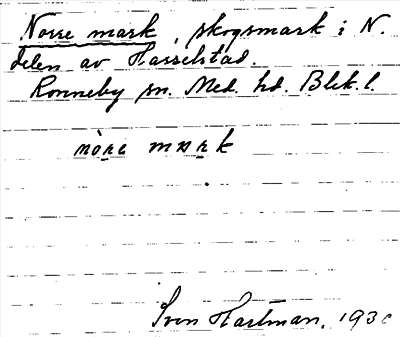 Norre mark, skogsmark i N.
delen av Hasselstad.
Ronneby sn. Med. hd. Blek. l.
nòre mark
Sven Hartman, 193